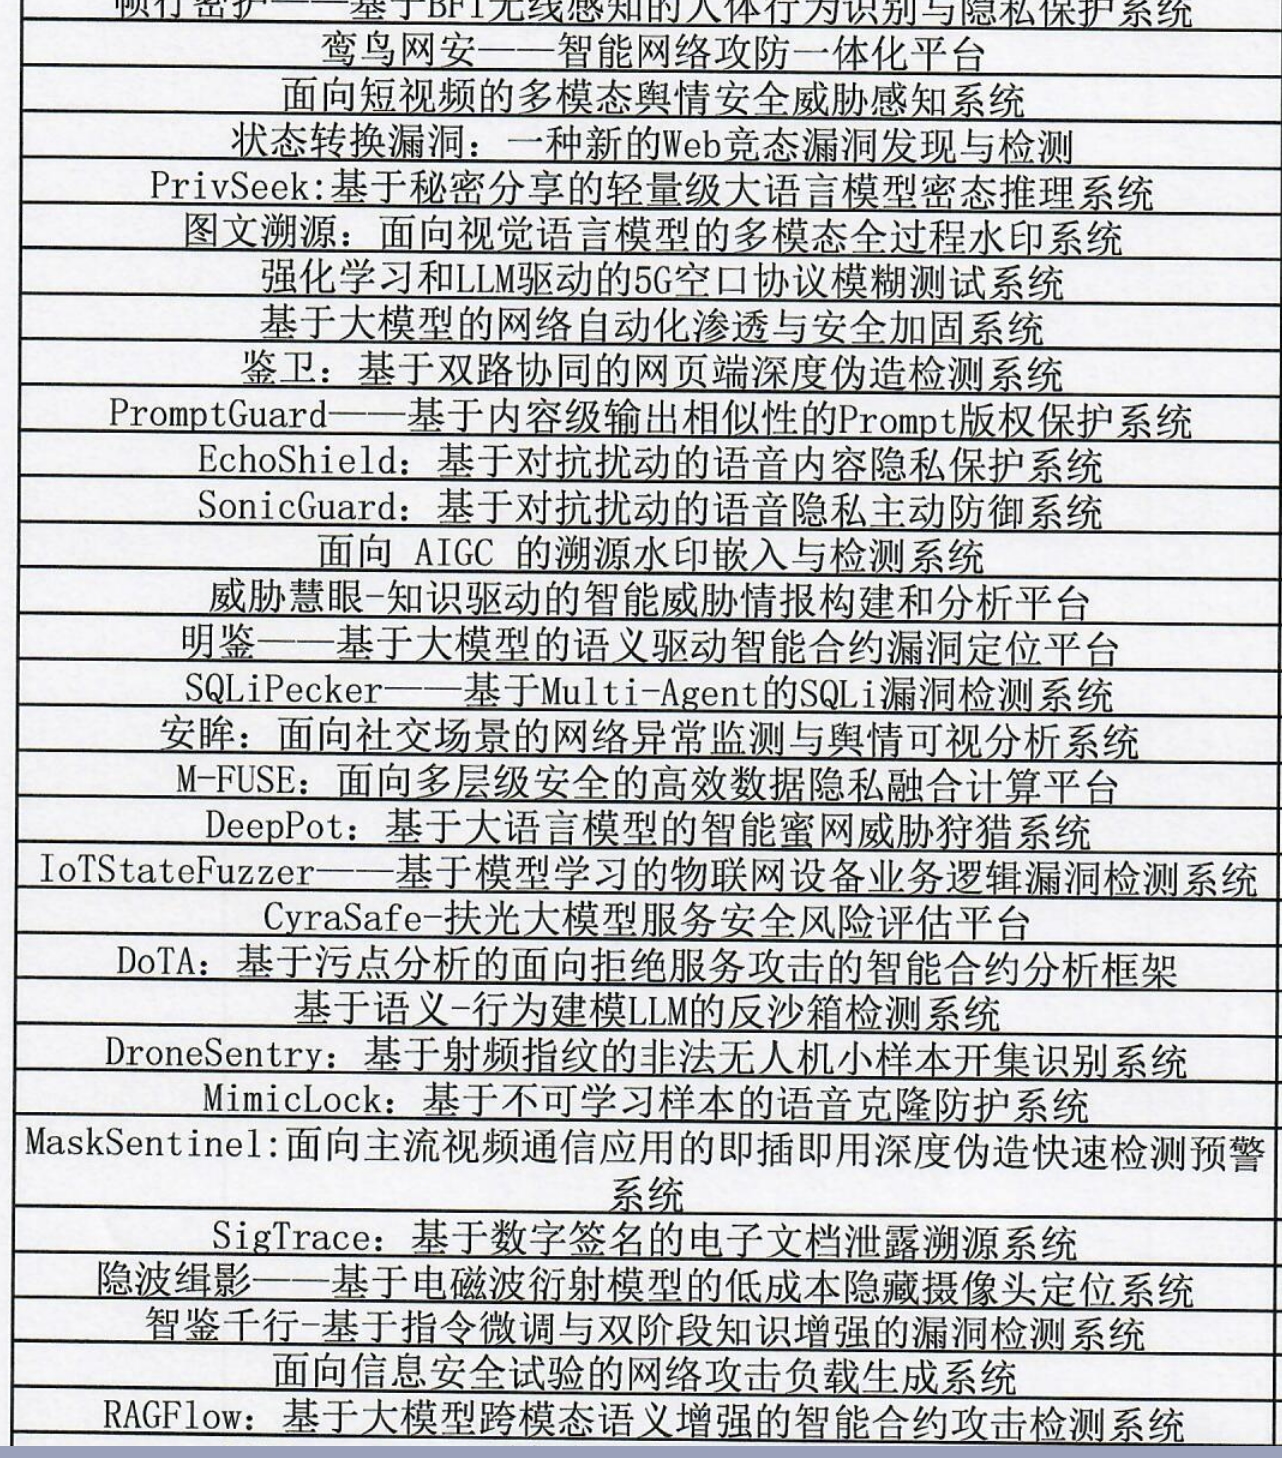 帧行密护——基于BFI无线感知的人体行为识别与隐私保护系统
鸾鸟网安——智能网络攻防一体化平台
面向短视频的多模态舆情安全威胁感知系统
状态转换漏洞：一种新的Web竞态漏洞发现与检测
PrivSeek:基于秘密分享的轻量级大语言模型密态推理系统
图文溯源：面向视觉语言模型的多模态全过程水印系统
强化学习和LLM驱动的5G空口协议模糊测试系统
基于大模型的网络自动化渗透与安全加固系统
鉴卫：基于双路协同的网页端深度伪造检测系统
PromptGuard——基于内容级输出相似性的Prompt版权保护系统
EchoShield：基于对抗扰动的语音内容隐私保护系统
SonicGuard：基于对抗扰动的语音隐私主动防御系统
面向 AIGC 的溯源水印嵌入与检测系统
威胁慧眼-知识驱动的智能威胁情报构建和分析平台
明鉴——基于大模型的语义驱动智能合约漏洞定位平台
SQLiPecker——基于Multi-Agent的SQLi漏洞检测系统
安眸：面向社交场景的网络异常监测与舆情可视分析系统
M-FUSE：面向多层级安全的高效数据隐私融合计算平台
DeepPot：基于大语言模型的智能蜜网威胁狩猎系统
IoTStateFuzzer——基于模型学习的物联网设备业务逻辑漏洞检测系统
CyraSafe-扶光大模型服务安全风险评估平台
DoTA：基于污点分析的面向拒绝服务攻击的智能合约分析框架
基于语义-行为建模LLM的反沙箱检测系统
DroneSentry：基于射频指纹的非法无人机小样本开集识别系统
MimicLock：基于不可学习样本的语音克隆防护系统
MaskSentinel:面向主流视频通信应用的即插即用深度伪造快速检测预警
系统
SigTrace：基于数字签名的电子文档泄露溯源系统
隐波缉影——基于电磁波衍射模型的低成本隐藏摄像头定位系统
智鉴千行-基于指令微调与双阶段知识增强的漏洞检测系统
面向信息安全试验的网络攻击负载生成系统
RAGFlow：基于大模型跨模态语义增强的智能合约攻击检测系统